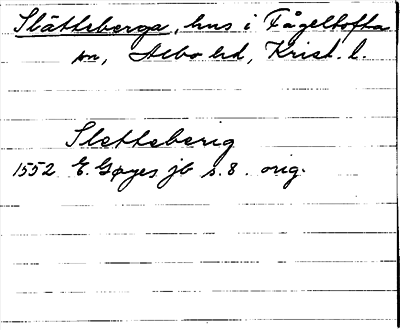 Slätteberga, hus i Fågeltofta
sn, Albo hd, Krist. l.
Sletteberig
1552 E. Gøyes jb s. 8. orig.